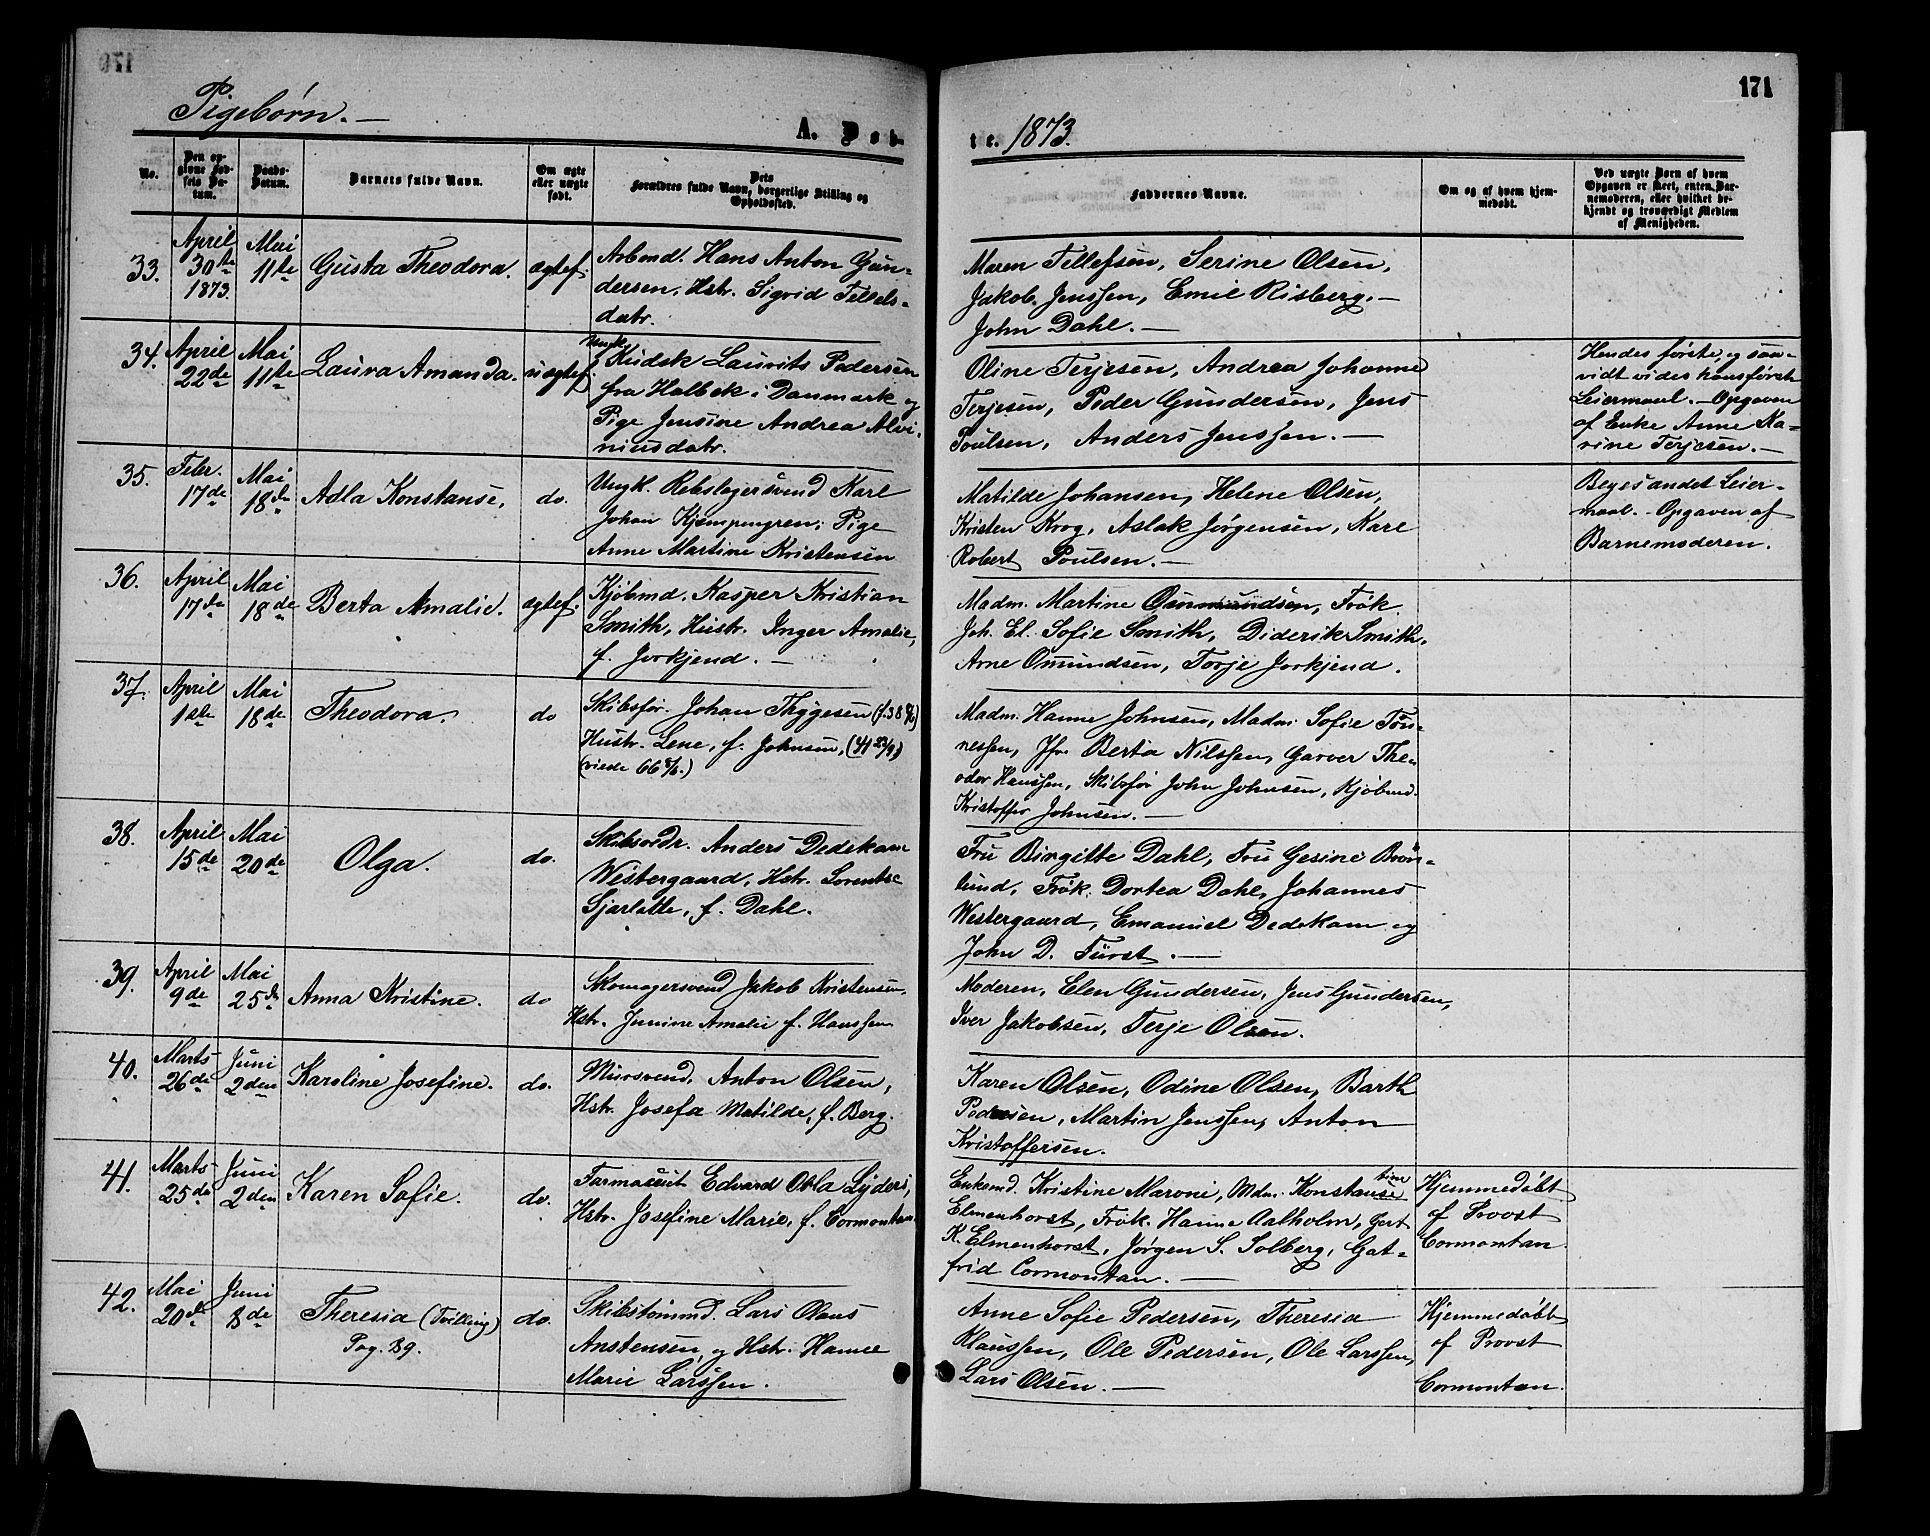 170
171
Pigebørn. —
A. Døb-
te. 1873.
No.
Den op-
givne Fød-
sels Da-
tum.
Daabs-
Datum.
Barnets fulde Navn.
Om ægte
eller uægte
født.
Dets
Forældres fulde Navn, borgerlige Stilling og
Opholdssted.
Faddernes Navne.
Om og af hvem hjem-
medøbt.
Ved uægte Børn af hvem
Opgaven er skeet, enten Bar-
nemoderen, eller hvilket be-
kjendt og troværdigt Medlem
af Menigheden.
33.
April
30te
1873.
Mai
11te
Gusta Theodora.
ægtef.
Arbmd. Hans Anton Gun-
dersen, Hstr. Sigrid Tellefs-
datr.
Maren Tellefsen, Serine Olsen,
Jakob Jenssen, Emil Risberg. —
John Dahl. —
34.
April
22de
Mai
11te
Laura Amanda.
uægtef.
Ungk.
Kudsk Laurits Pedersen
fra Holbek i Danmark og
Pige Jensine Andrea Alvi-
niusdatr.
Oline Terjesen, Andrea Johanne
Terjesen, Peder Gundersen, Jens
Poulsen, Anders Jenssen. —
Hendes første, og saa-
vidt vides hans første
Leiermaal. — Opgaven
af Enke Anne Ka-
rine Terjesen. —
35.
Febr.
17de
Mai
18de
Adla Konstanse,
do.
Ungk. Rebslagersvend Karl
Johan Kjempengren; Pige
Anne Martine Kristensen
Matilde Johansen, Helene Olsen,
Kristen Krog, Aslak Jørgensen, Karl
Robert Poulsen. —
Beges andet Leier-
maal. — Opgaven af
Barnemoderen.
36.
April
17de
Mai
18de
Berta Amalie.
ægtef.
Kjøbmd. Kasper Kristian
Smith, Hustr. Inger Amalie,
f. Jorkjend. —
Madm. Martine Omundsen, Frøk.
Joh. El. Sofie Smith, Diderik Smith,
Arne Omundsen, Torje Jorkjend.
37.
April
1ste
Mai
18de
Theodora.
do
Skibsfør. Johan Thygesen (f. 38
Hustr. Lene, f. Johnsen, (41
(viede 66
Madm. Hanne Johnsen, Madm. Sofie Tøn-
nessen, Jfr. Berta Nilssen, Garver The-
odor Hanssen, Skibsfør John Johnsen, Kjøbmd.
Kristoffer Johnsen. —
38.
April
15de
Mai
20de
Olga.
do.
Skibsredr. Anders Dedekam
Westergaard, Hstr. Lorentse
Sjarlotte, f. Dahl.
Fru Birgitte Dahl, Fru Gesine Brøn-
lund, Frøk. Dortea Dahl, Johannes
Westergaard, Emanuel Dedekam og
John D. Fürst. —
39.
April
9de
Mai
25de
Anna Kristine.
do
Skomagersvend Jakob Kristensen,
Hstr. Junine Amalie f. Hanssen
Moderen, Elen Gundersen, Jens Gundersen,
Iver Jakobsen, Terje Olsen.
40.
Marts
26de
Juni
2den
Karoline Josefine.
do.
Mursvend, Anton Olsen,
Hstr. Josefa Matilde, f. Berg.
Karen Olsen, Odine Olsen, Barth
Pedersen, Martin Jenssen, Anton
Kristoffersen.
41.
Marts
25de
Juni
2den
Karen Sofie.
do.
Farmaceut Edvard Obla Lyders,
Hstr. Josefine Marie, f. Cormontan.
Enkemd. Kristine Maroni, Mdm. Konstanse
tine
Elmenhorst, Frøk. Hanne Aalholm, Gert
K. Elmenhorst, Jørgen S. Solberg, Gat-
frid Cormontan. —
Hjemmedøbt
af Provst
Cormontan
42.
Mai
20de
Juni
8de
Theresia (Tvilling)
Pag. 89.
do.
Skibstømmd. Lars Olaus
Anstensen, og Hstr. Hanne
Marie Larssen.
Anne Sofie Pedersen, Theresia
Klaussen, Ole Pedersen, Ole Larssen,
Lars Olsen. —
Hjemmedøbt
af Provst
Cormontan.